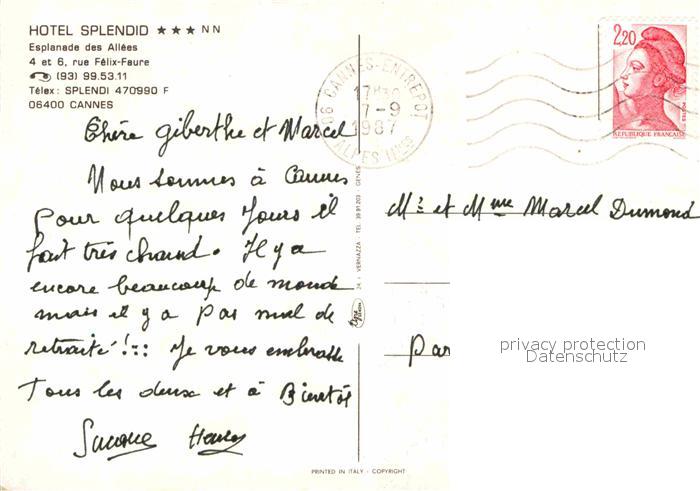 HOTEL SPLENDID ★★★ NN
Esplanade des Allées
4 et 6, rue Félix-Faure
(93) 99.53.11
Télex: SPLENDI 470990 F
06400 CANNES
CANNES-ENTREPOT
17H30
7-9
1987
06 ALPES Mmes
2,20
POSTES
REPUBLIQUE FRANÇAISE
Chère giberthe et Marcel
Nous sommes à Cannes
pour quelques jours il
fait très chaud. Il y a
encore beaucoup de monde
mais il y a pas mal de
retraité!... Je vous embrasse
Tous les deux et à Bientôt
Henry
Mr et Mme Marcel Dumond
Par
privacy protection
Datenschutz
VERNAZZA - TEL.
PRINTED IN ITALY - COPYRIGHT